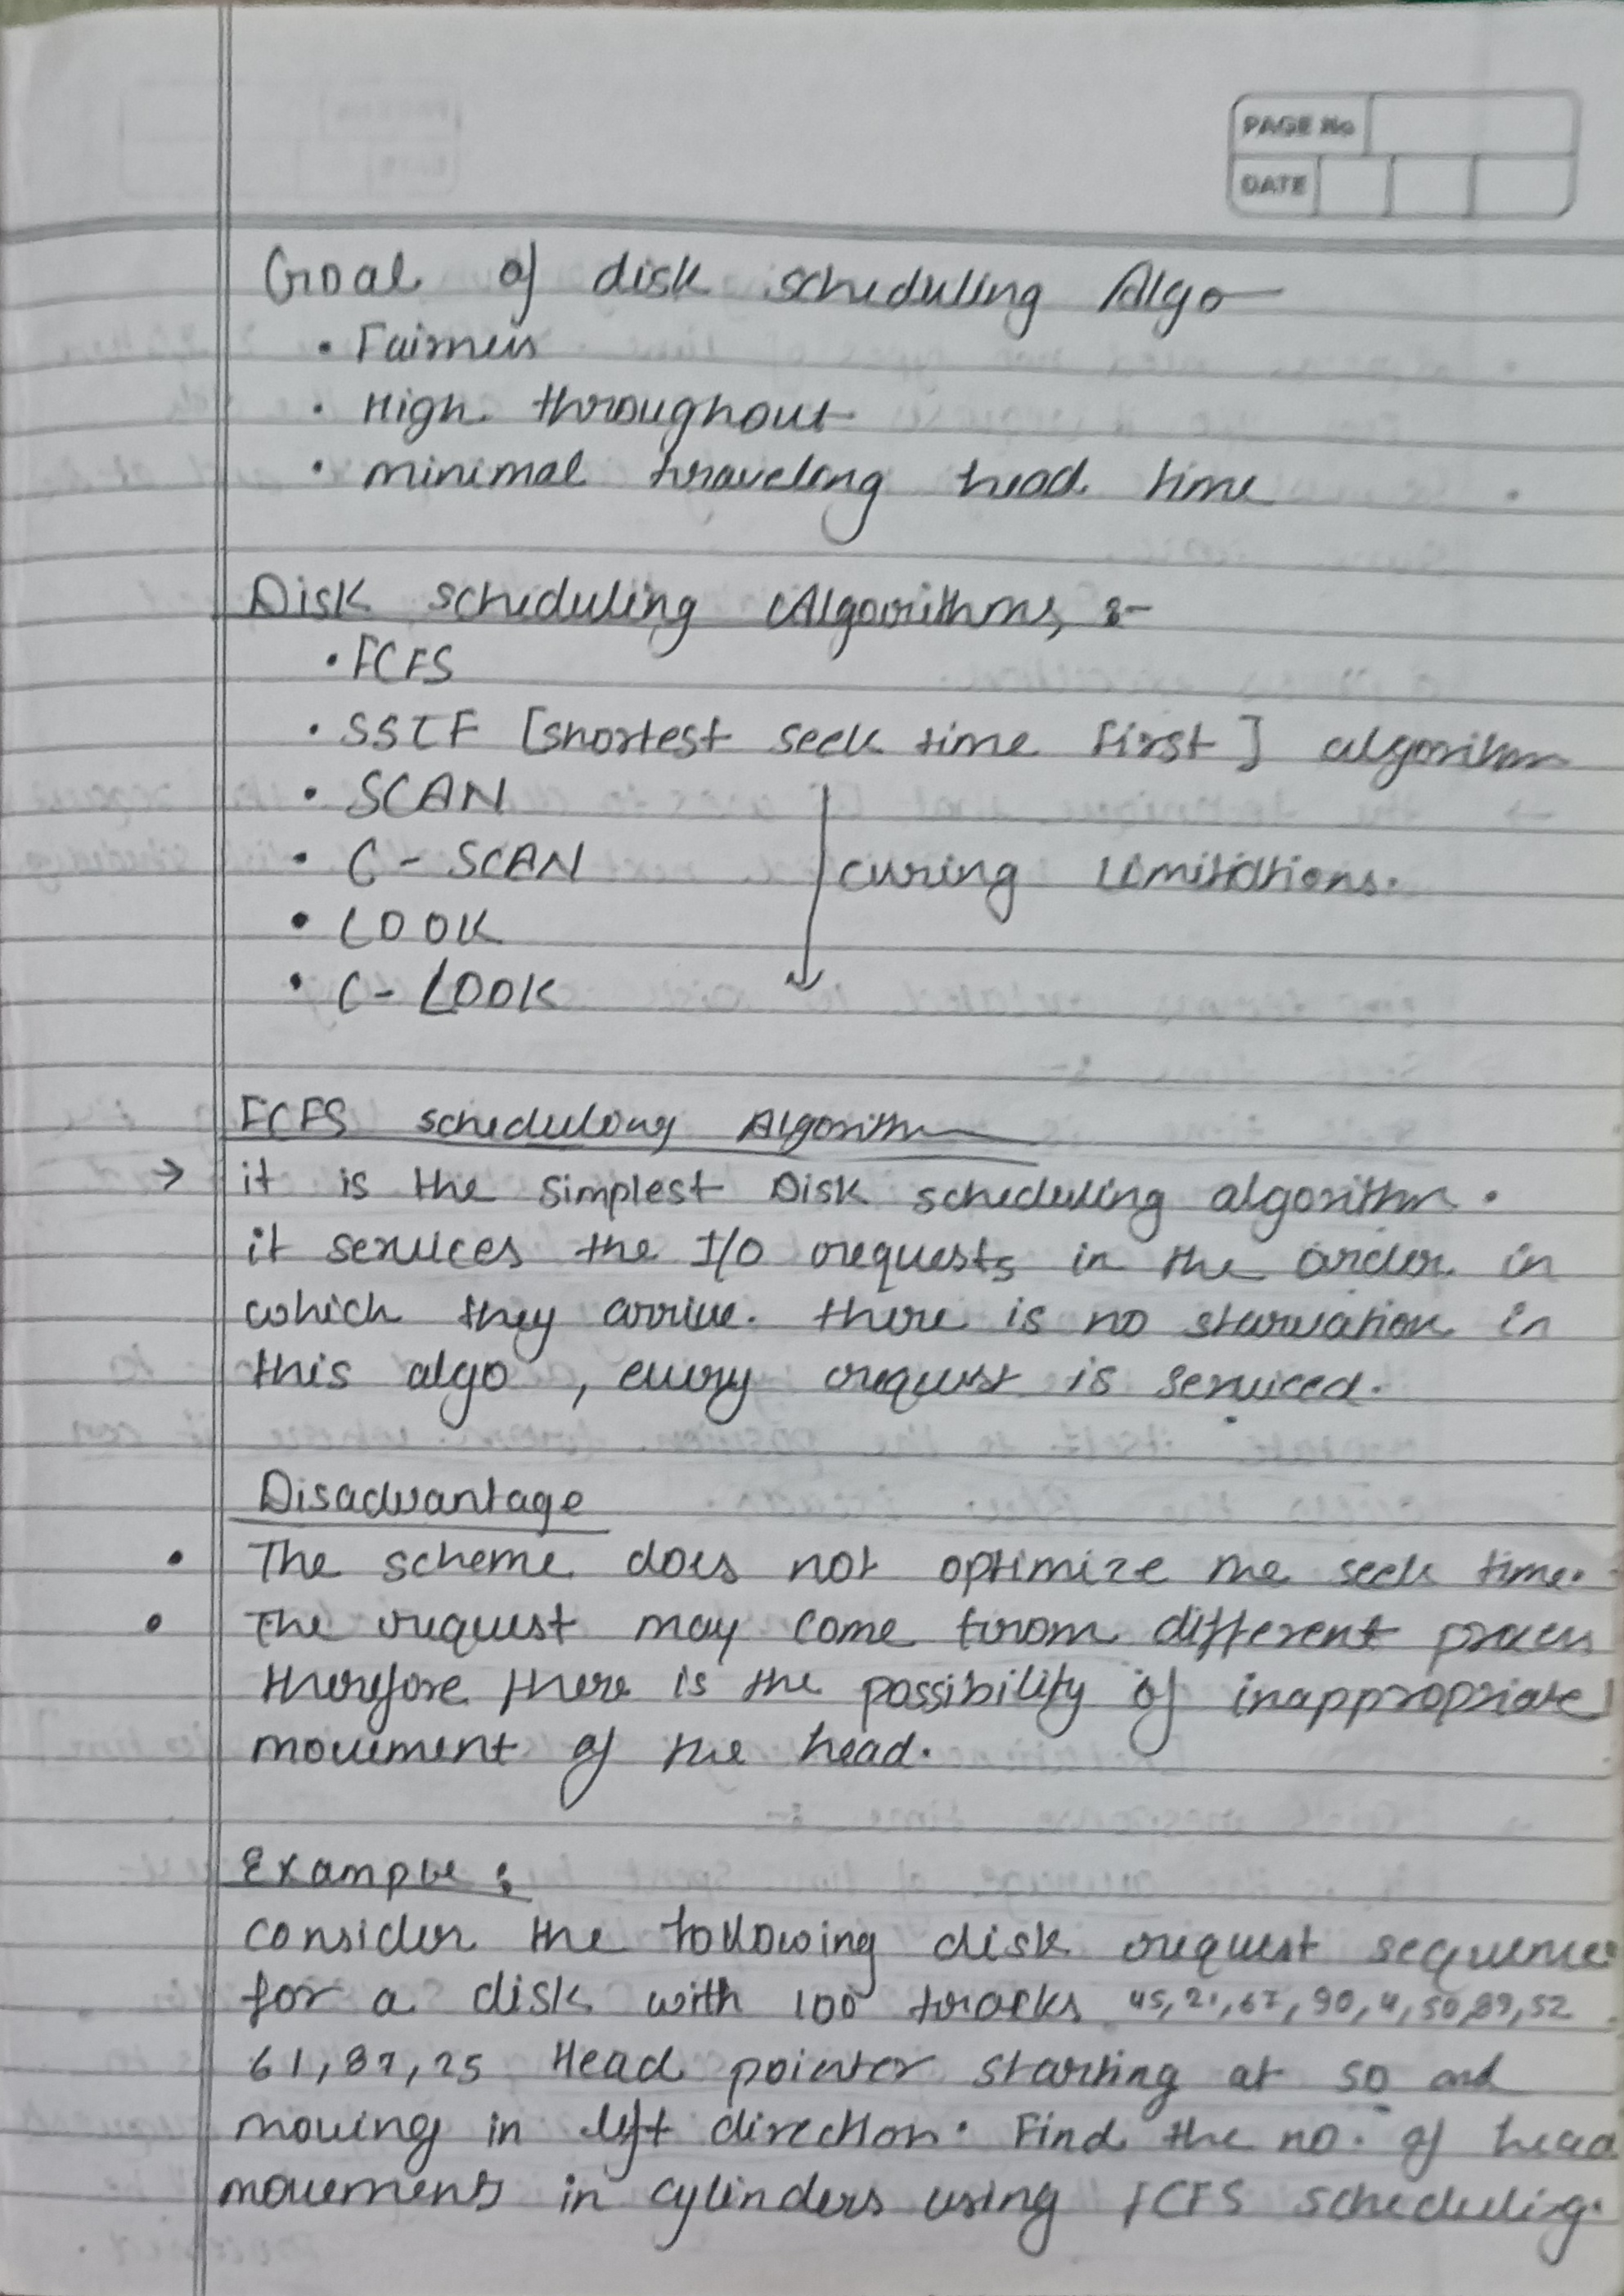 PAGE No
DATE
Goal of disk scheduling Algo
• Fairness
• High throughout
• minimal traveling head time
Disk scheduling Algorithms :-
• FCFS
• SSTF [shortest seek time first] algorithm
• SCAN
• C - SCAN
curing limitations.
• LOOK
• C - LOOK
FCFS scheduling Algorithm
→ it is the simplest Disk scheduling algorithm.
it services the I/O requests in the order in
which they arrive. there is no starvation in
this algo , every request is serviced.
Disadvantage
• The scheme does not optimize the seek time.
• The request may come from different process
therefore there is the possibility of inappropriate
movement of the head.
Example :
consider the following disk request sequence
for a disk with 100 tracks 45, 21, 67, 90, 4, 50, 89, 52
61, 87, 25 Head pointer starting at 50 and
moving in left direction. Find the no. of head
movements in cylinders using FCFS scheduling.